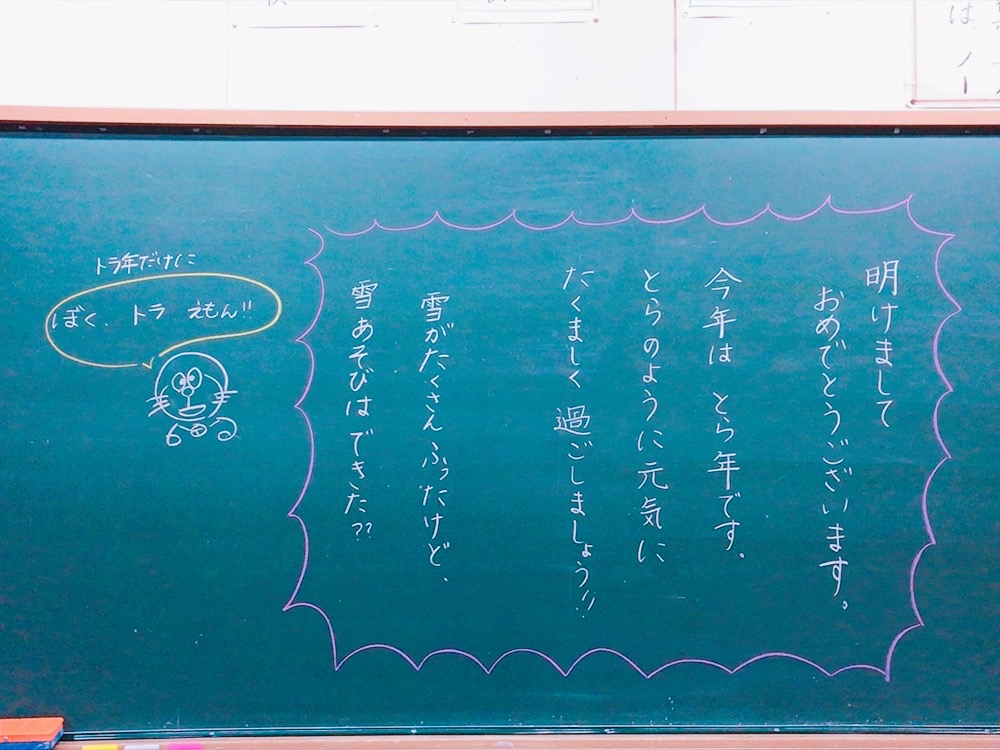 明けまして
おめでとうございます。
今年は とら年です。
とらのように元気に
たくましく 過ごしましょう!!
雪がたくさんふったけど、
雪あそびは できた??
トラ年だけに
ぼく、トラ えもん!!
は、